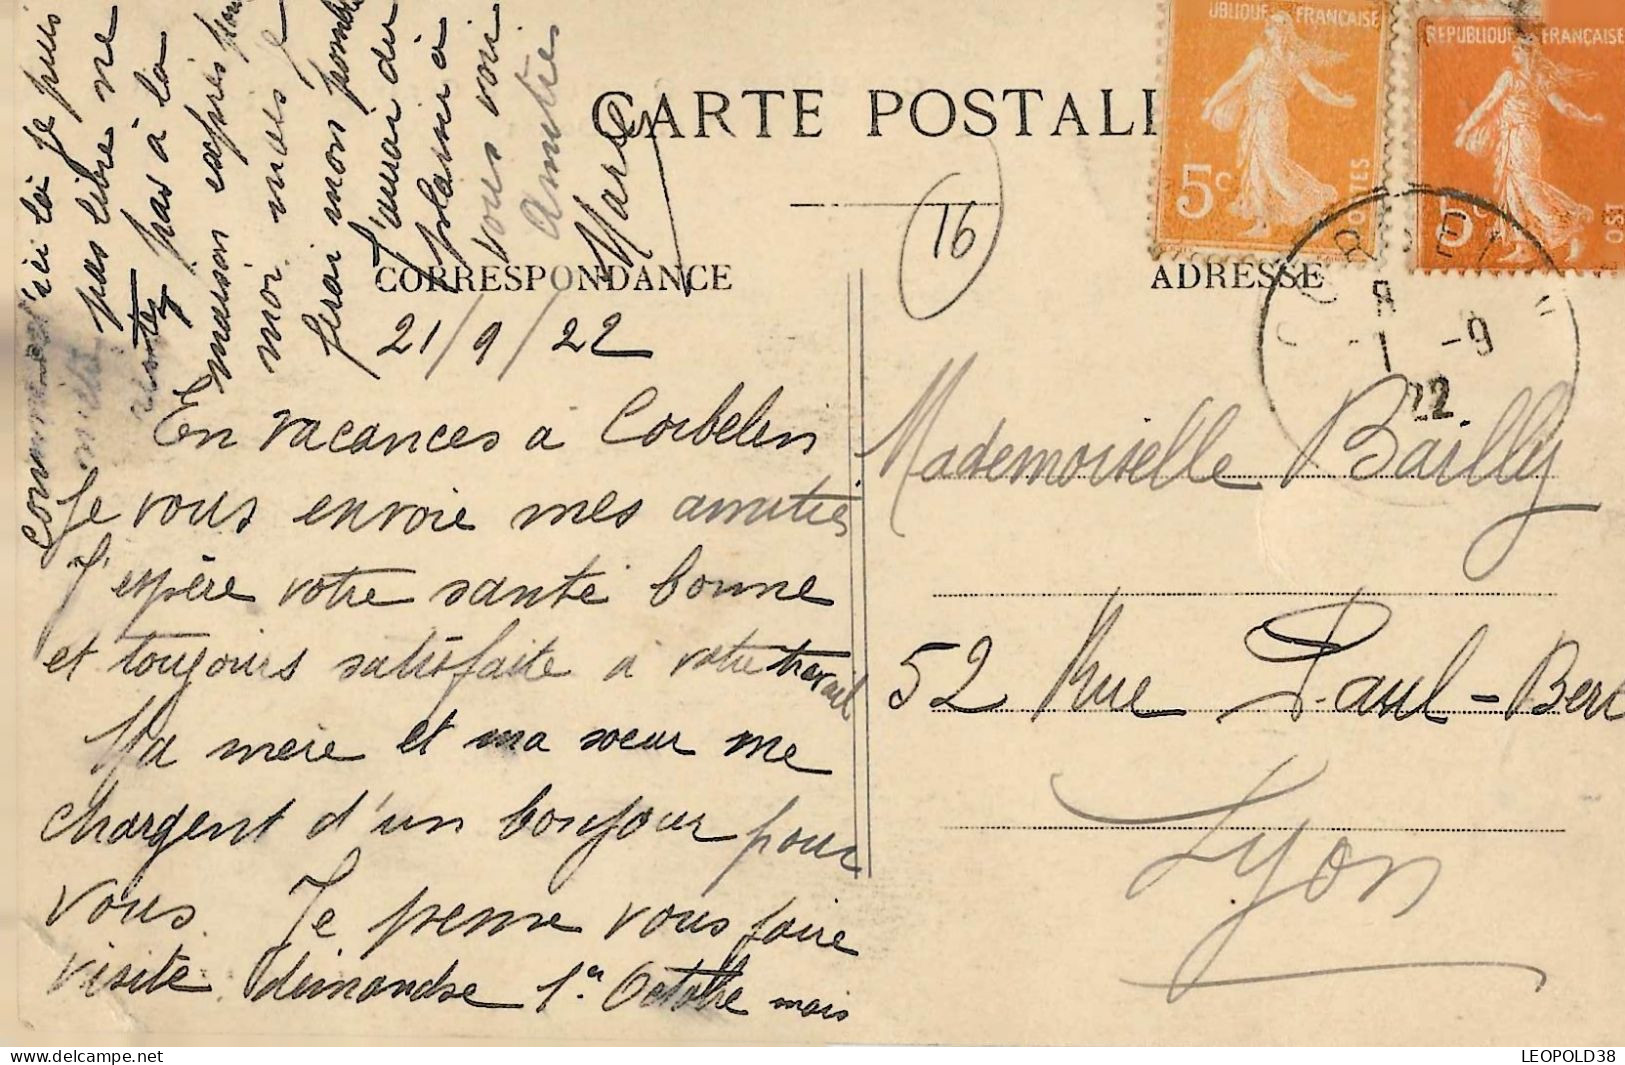 CARTE POSTALE
UBLIQUE FRANÇAISE
5c
POSTES
REPUBLIQUE FRANÇAISE
5c
16
CORRESPONDANCE
ADRESSE
-9
22
21/9/22
En vacances à Corbelin
Je vous envoie mes amitiés
J'espère votre santé bonne
et toujours satisfaite à votre travail
Ma mère et ma sœur me
chargent d'un bonjour pour
vous. Je pense vous faire
visite dimanche 1er Octobre mais
comme d'ici là Je puis
pas libre ne
restez pas à la
maison exprès pour
moi mais je
ferai mon possible
J'aurai du
plaisir à
vous voir
Amitiés
Marcel
Mademoiselle Bailly
52 Rue Paul-Bert
Lyon
LEOPOLD38